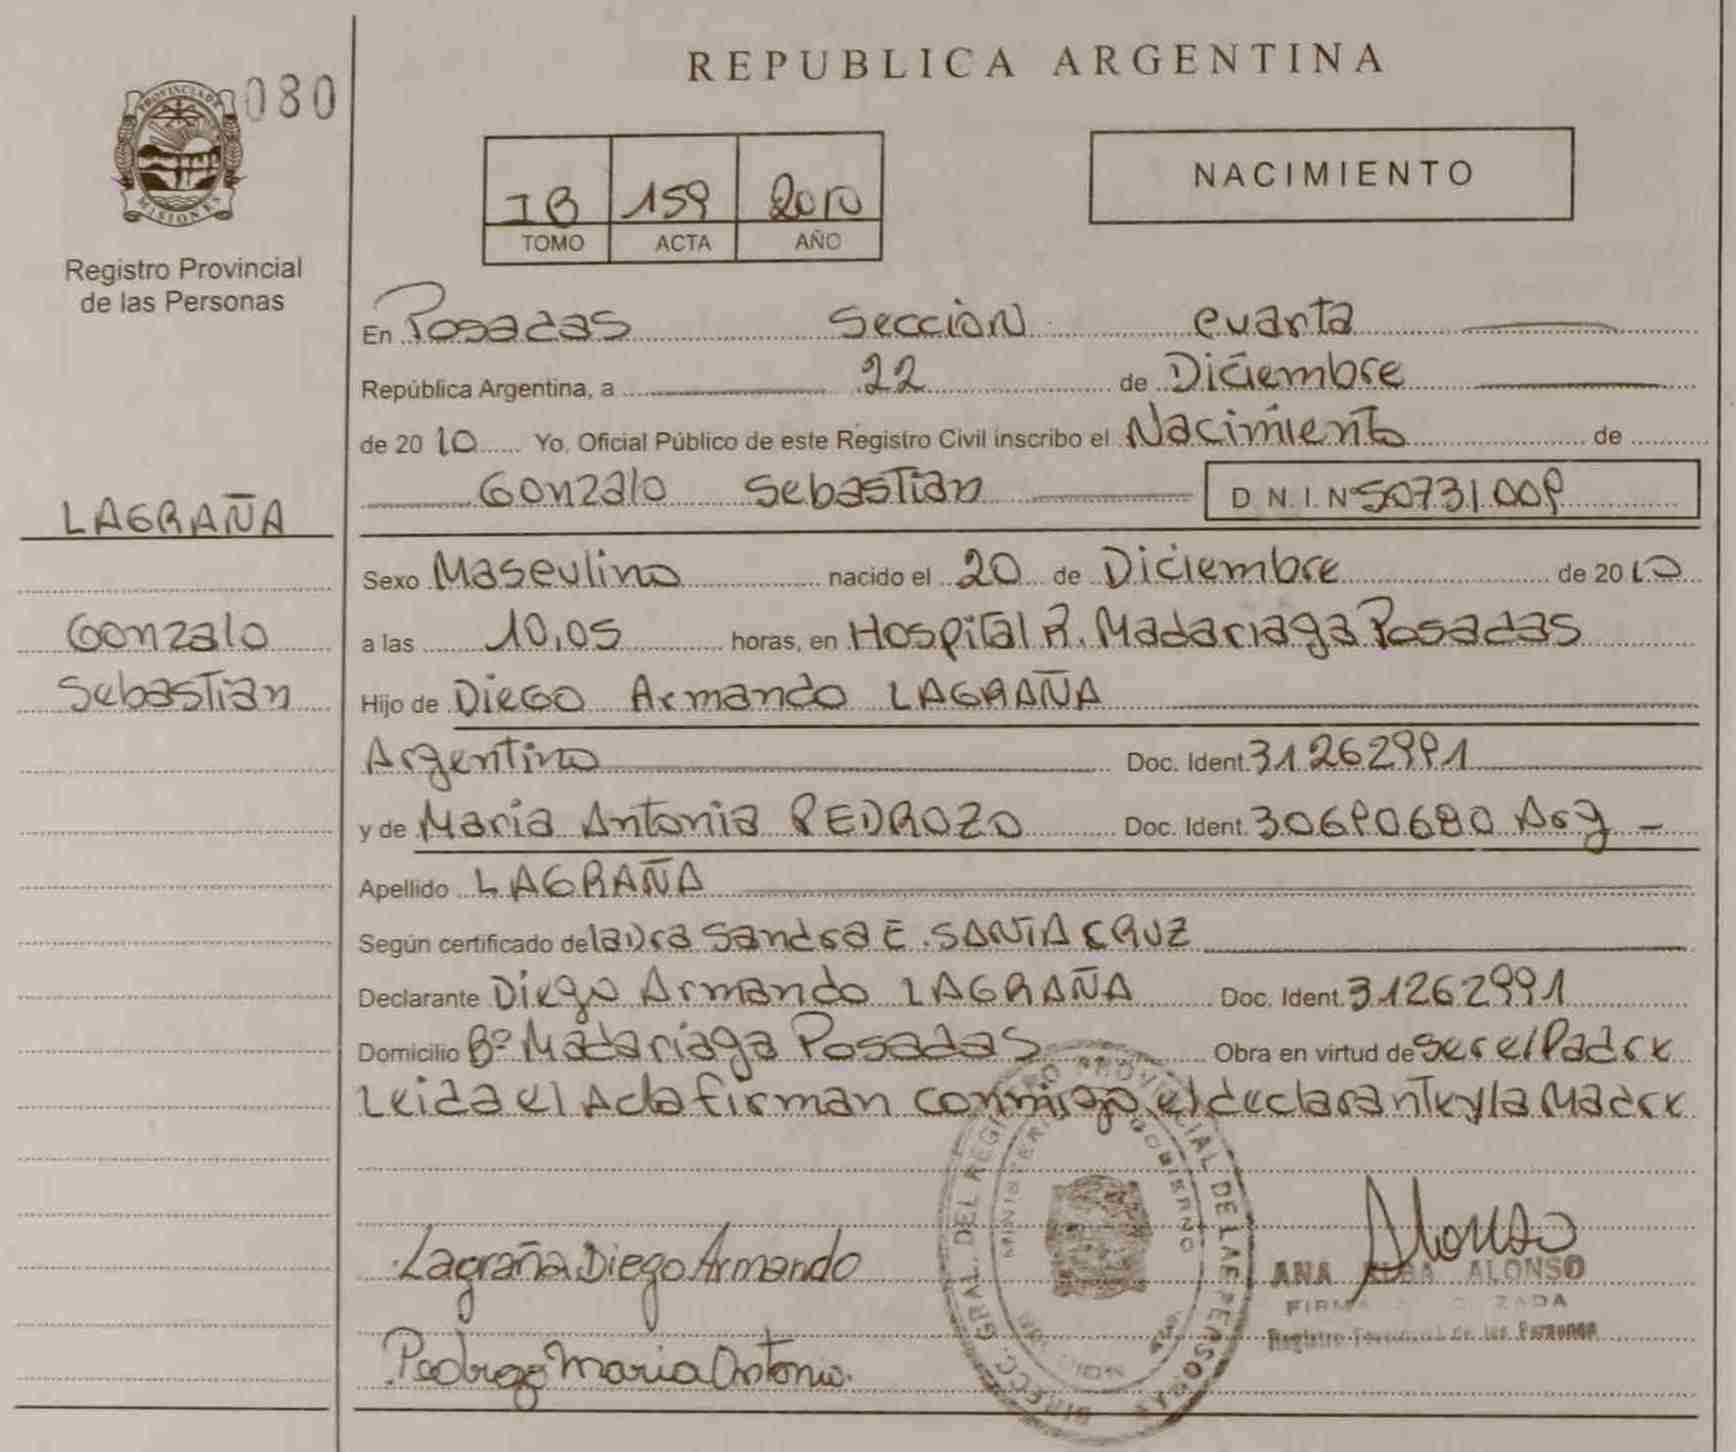 REPUBLICA ARGENTINA
080
PROVINCIA DE
MISIONES
Registro Provincial
de las Personas
NACIMIENTO
IB 159 2010
TOMO ACTA AÑO
En Posadas Sección cuarta
República Argentina, a 22 de Diciembre
de 2010 Yo, Oficial Público de este Registro Civil inscribo el Nacimiento de
Gonzalo Sebastian D.N.I. Nº
LAGRAÑA
Gonzalo
Sebastian
Sexo Masculino nacido el 20 de Diciembre de 2010
a las 10,05 horas, en Hospital R. Madariaga Posadas
Hijo de Diego Armando LAGRAÑA
Argentino Doc. Ident. 31262991
y de Maria Antonia PEDROZO Doc. Ident. Arg
Apellido LAGRAÑA
Según certificado de la Dra Sandra E. SANTA CRUZ
Declarante Diego Armando LAGRAÑA Doc. Ident. 31262991
Domicilio Bº Madariaga Posadas Obra en virtud de ser el Padre
Leida el Acta firman conmigo el declarante y la Madre
Lagraña Diego Armando
Alonso
ANA ALONSO
Pedrozo Maria Antonia
DIRECC. GRAL. DEL REGISTRO PROVINCIAL DE LAS PERSONAS